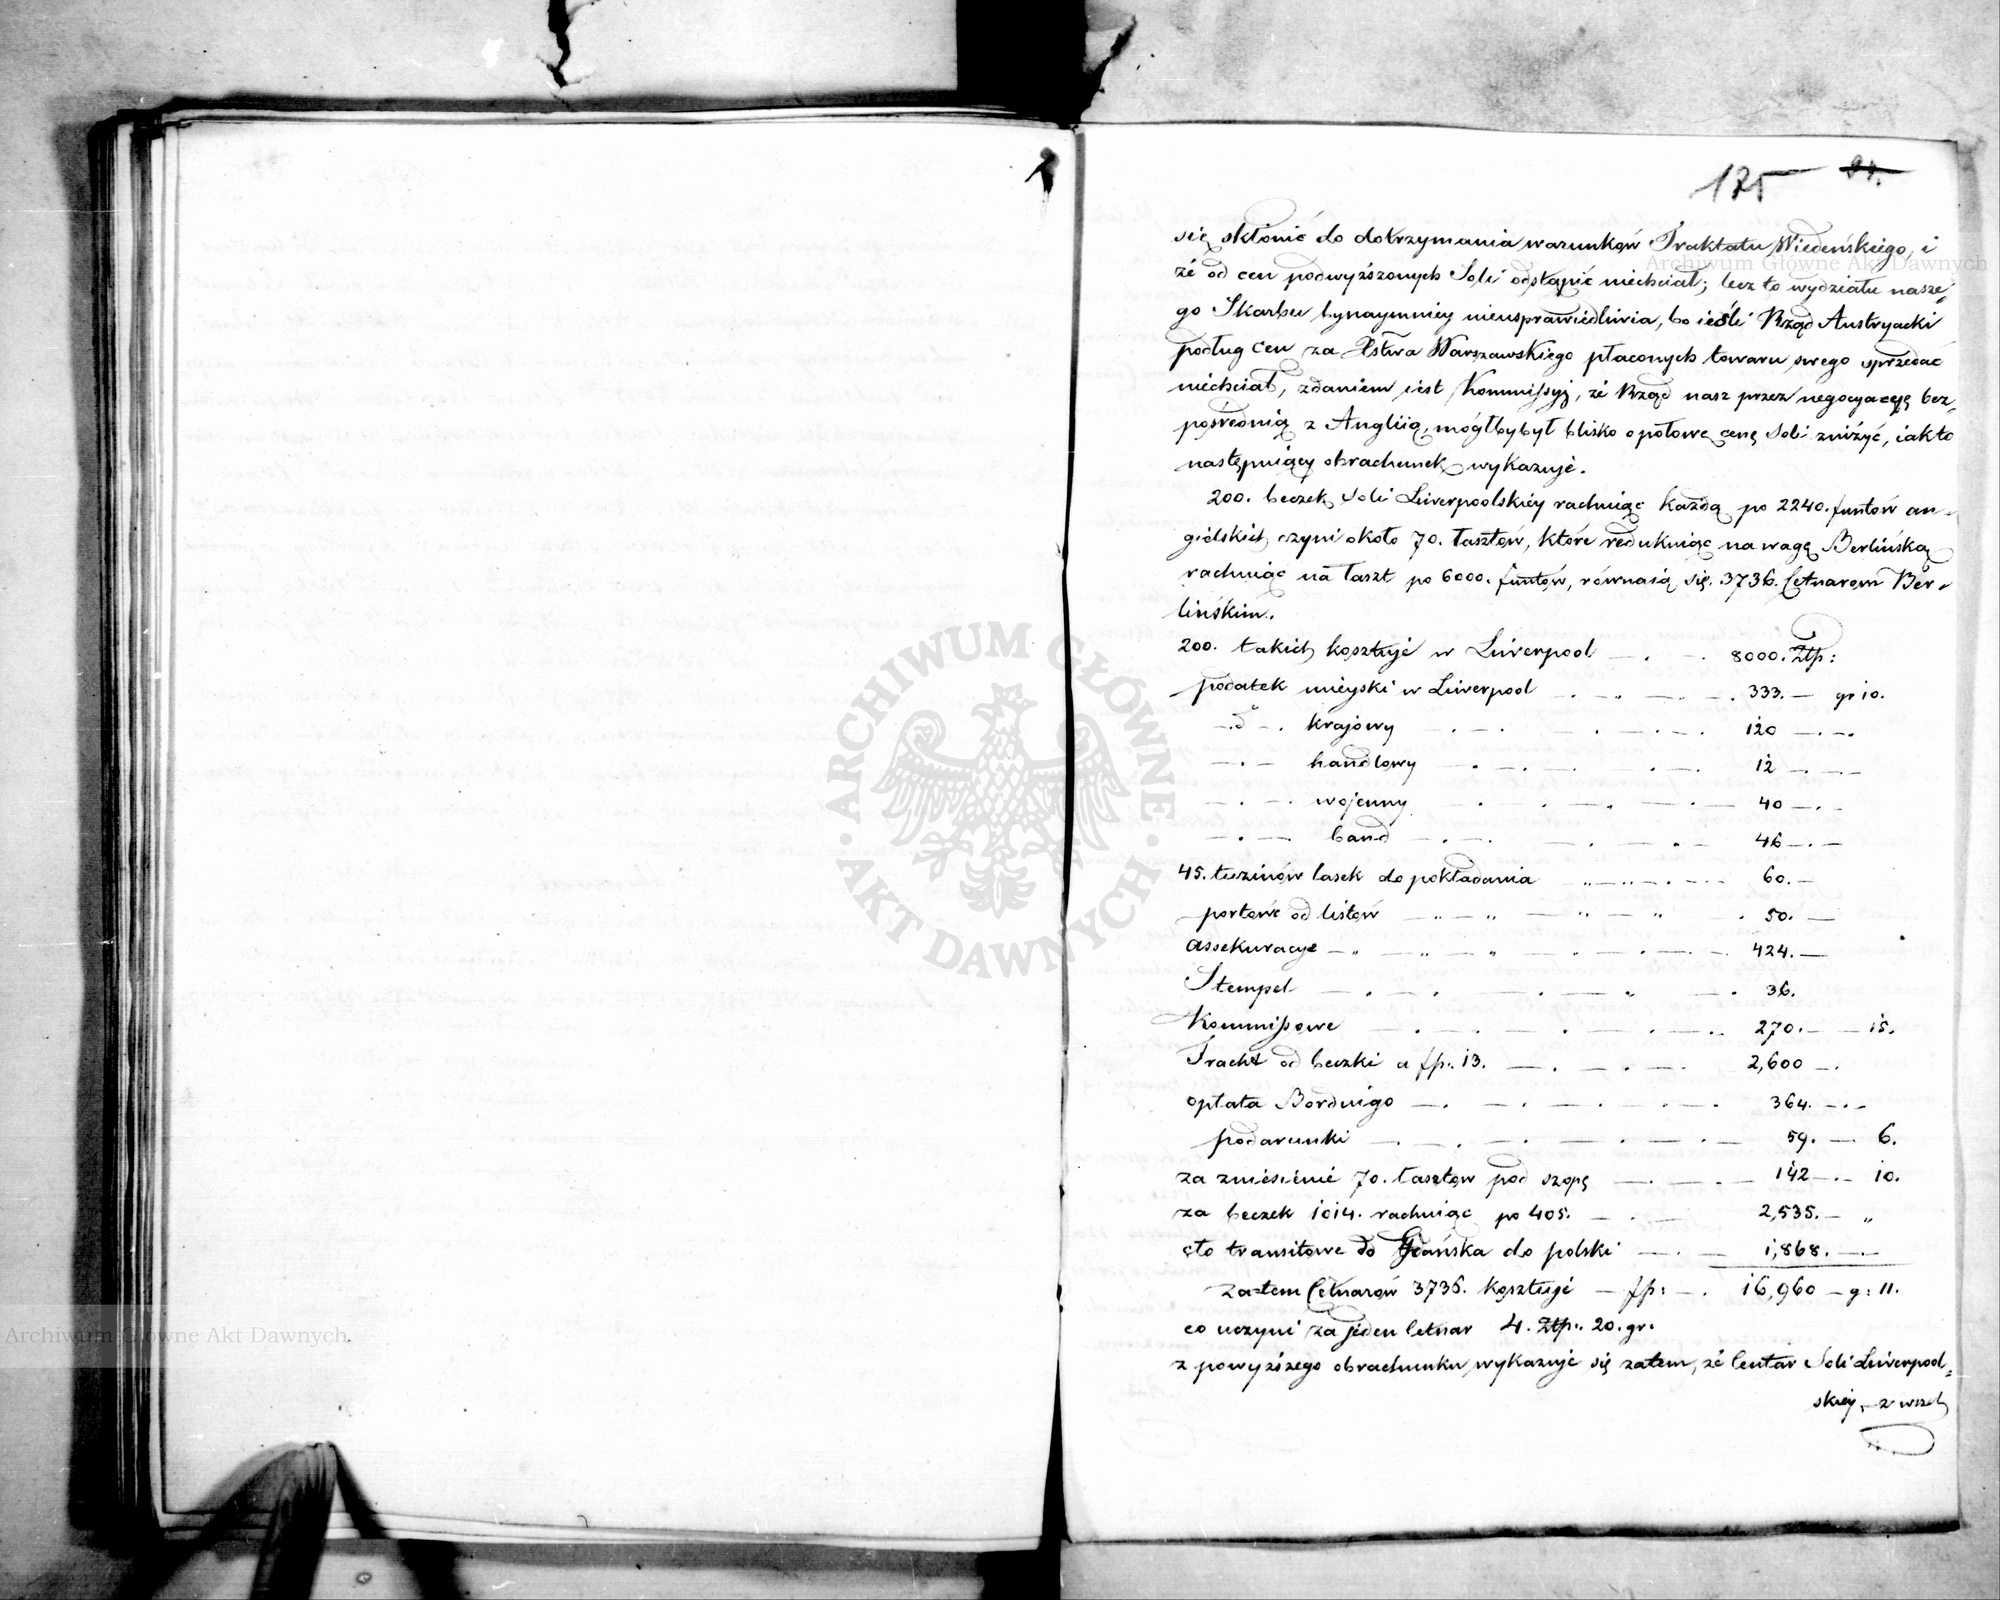 175 94.
się skłonić do dotrzymania warunków Traktatu Wiedeńskiego, i
że od cen podwyższonych Soli odstąpić niechciał; lecz to wydziału nasze-
go Skarbu bynaymniey nieusprawiedliwia, bo ieśli Rząd Austryacki
podług cen za Xstwa Warszawskiego płaconych towaru swego sprzedać
niechciał, zdaniem iest Kommissyi, że Rząd nasz przez negocyacyę bez-
pośrednią z Anglią, mógłby był blisko o połowę cenę Soli zniżyć, iak to
następuiący obrachunek wykazuie.
200. beczek Soli Liwerpoolskiey rachuiąc każdą po 2240. funtów an-
gielskich czyni około 70. łasztów, które redukuiąc na wagę Berlińską
rachuiąc na łaszt po 6000. funtów, równaią się 3736. Cetnarom Ber-
lińskim.
200. takich kosztuie w Liverpool — . — . 8000. Złp:
podatek mieyski w Liverpool — . — 333. — gr 10.
—.d° —. krajowy — . — . 120 —.—.
— . — handlowy — . — . 12 —.—
— . — wojenny — . — . 40 —.—
— . — band — . — . 46 —.—
45. tuzinów lasek do pokładania — 60. —
portowe od listów — 50. —
assekuracye — 424. —
Stempel — 36.
Kommissowe — 270. — 15.
Fracht od beczki a fp: 13. — 2,600 —.
opłata Bordingo — 364. —.—
podarunki — 59. — 6.
za zniesienie 70. łasztów pod szopę — 142 —.— 10.
za beczek 1014. rachuiąc po 405. — 2,535. — „
cło transitowe do Gdańska do polski — 1,868. —.—
zatem Cetnarów 3736. kosztuie — fp: — . 16,960 — g: 11.
co uczyni za jeden Cetnar 4. Złp: 20. gr.
z powyższego obrachunku wykazuie się zatem, że Centar Soli Liverpool-
skiey, z wszel
Archiwum Główne Akt Dawnych
Archiwum Główne Akt Dawnych.
· ARCHIWUM GŁÓWNE · AKT DAWNYCH